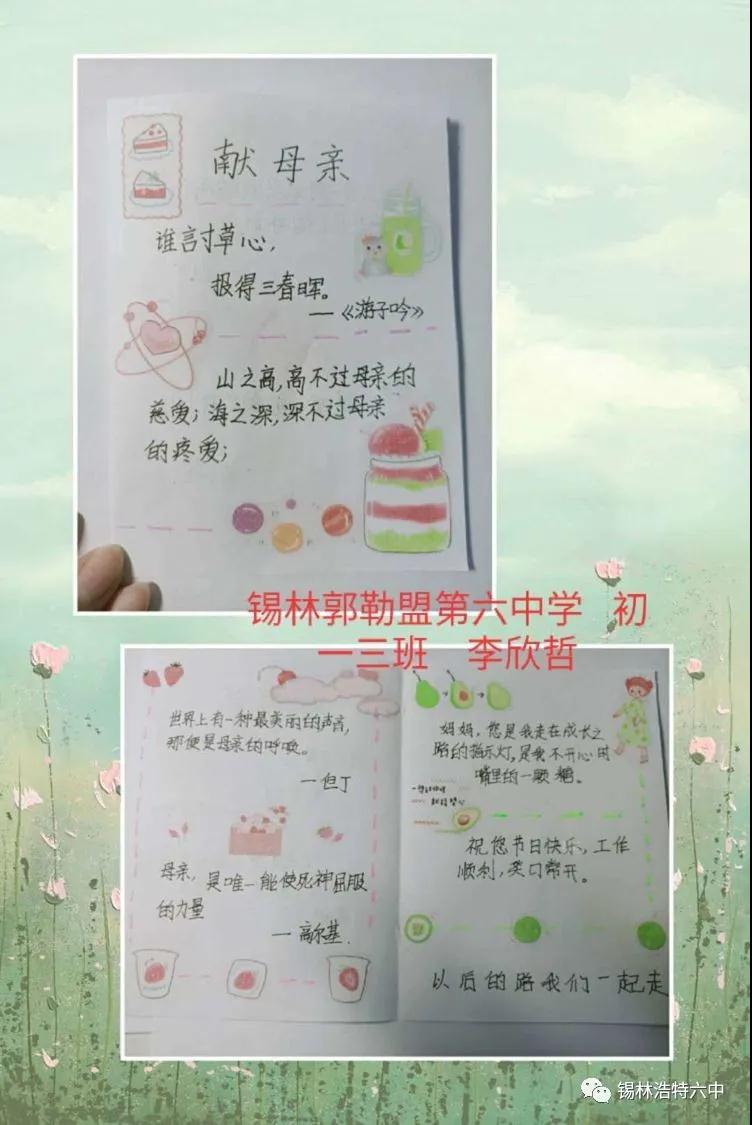 献母亲
谁言寸草心，
报得三春晖。
—《游子吟》
山之高，高不过母亲的
慈爱；海之深，深不过母亲
的疼爱；
锡林郭勒盟第六中学 初
一三班 李欣哲
世界上有一种最美丽的声音，
那便是母亲的呼唤。
—但丁
母亲，是唯一能使死神屈服
的力量
—高尔基.
妈妈，您是我走在成长之
路的指示灯，是我不开心时
嘴里的一颗糖。
祝您节日快乐，工作
顺利，笑口常开。
以后的路我们一起走
锡林浩特六中